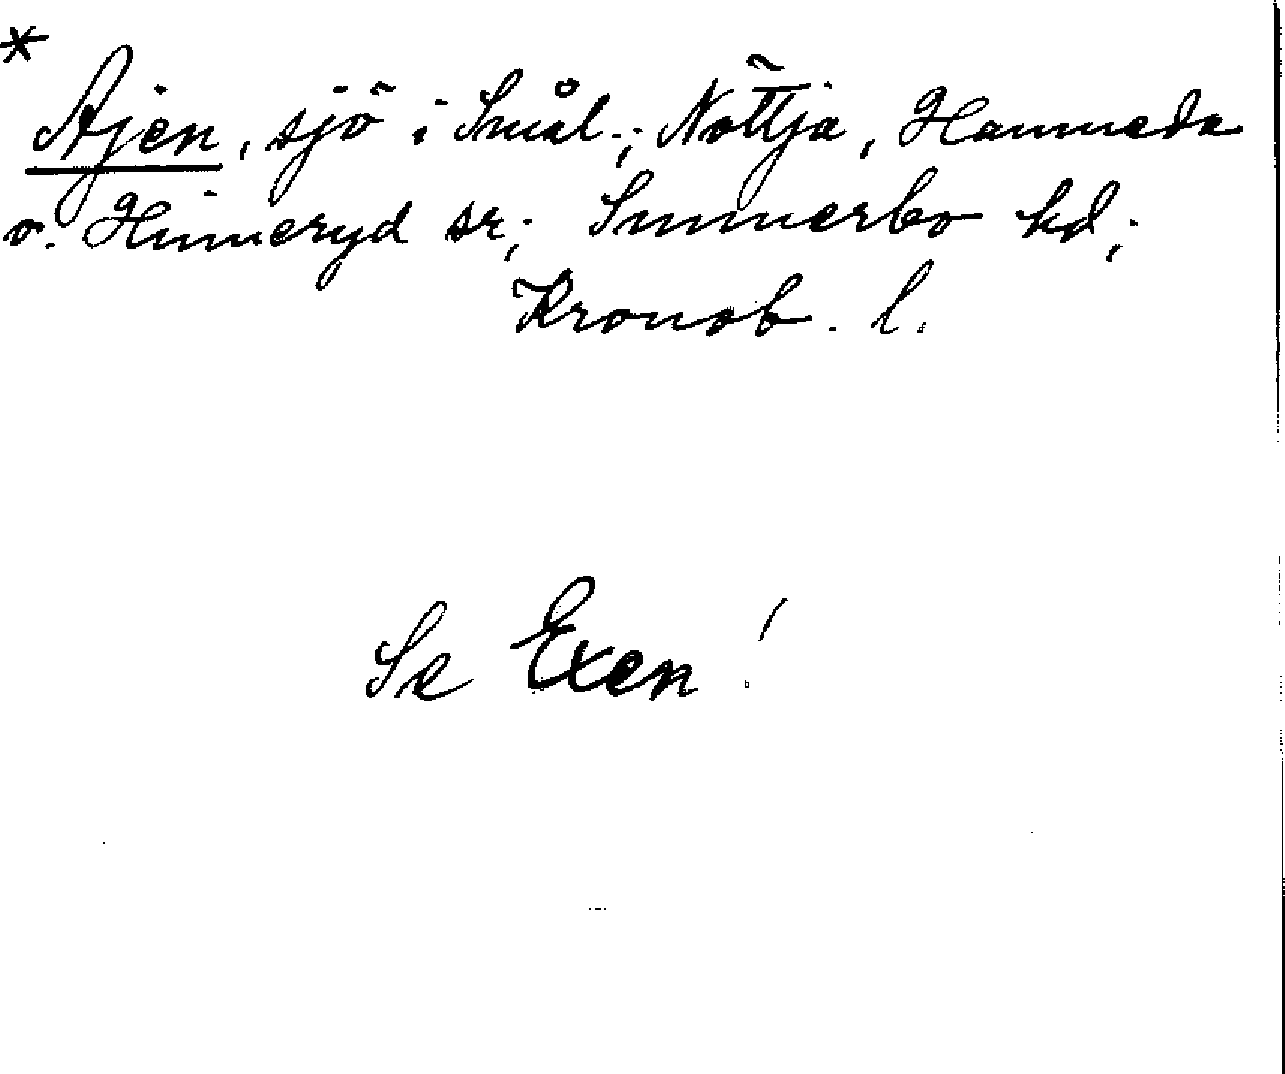 *
Ajen, sjö i Smål.; Nöttja, Hamneda
o. Hinneryd sr; Sunnerbo hd;
Kronob. l.
Se Exen!